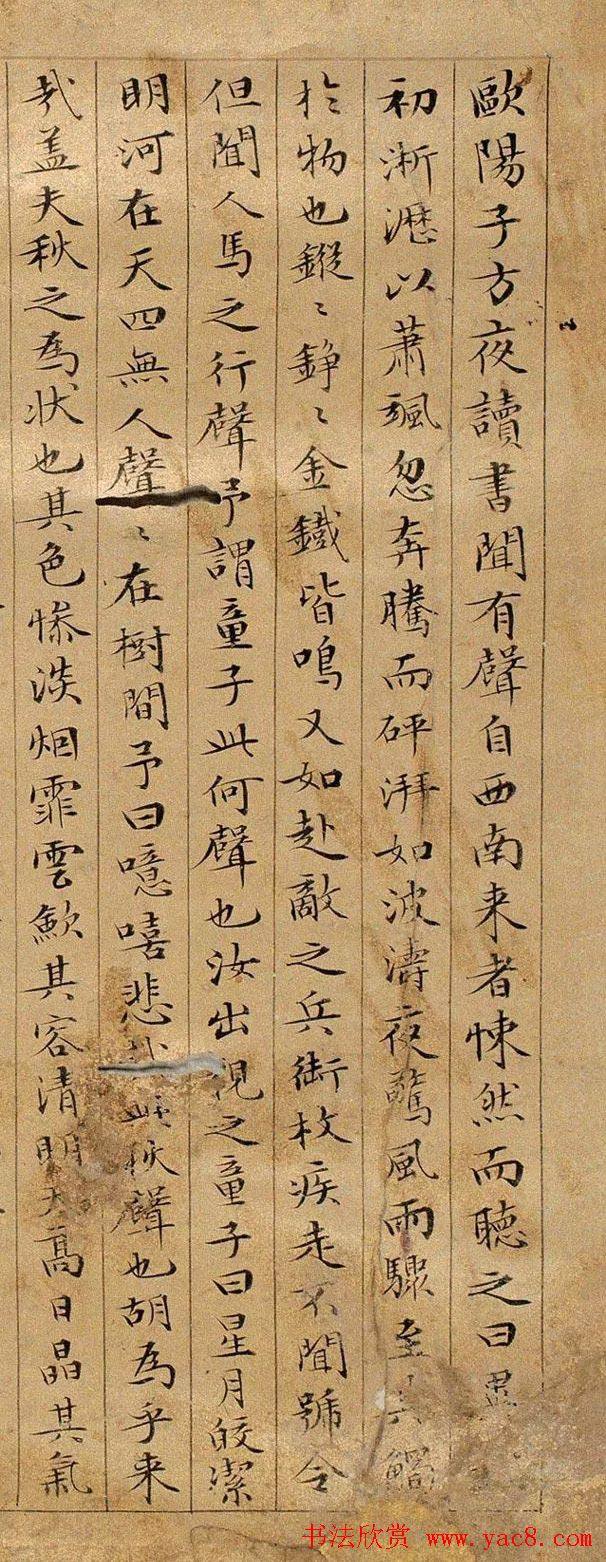 歐陽子方夜讀書聞有聲自西南来者悚然而聽之曰異
初淅瀝以蕭颯忽奔騰而砰湃如波濤夜驚風雨驟至其觸
於物也鏦〻錚〻金鐵皆鳴又如赴敵之兵銜枚疾走不聞號令
但聞人馬之行聲予謂童子此何聲也汝出視之童子曰星月皎潔
明河在天四無人聲〻在樹間予曰噫嘻悲此秋聲也胡為乎来
哉盖夫秋之為状也其色慘淡烟霏雲歛其容清明天高日晶其氣
书法欣赏 www.yac8.com